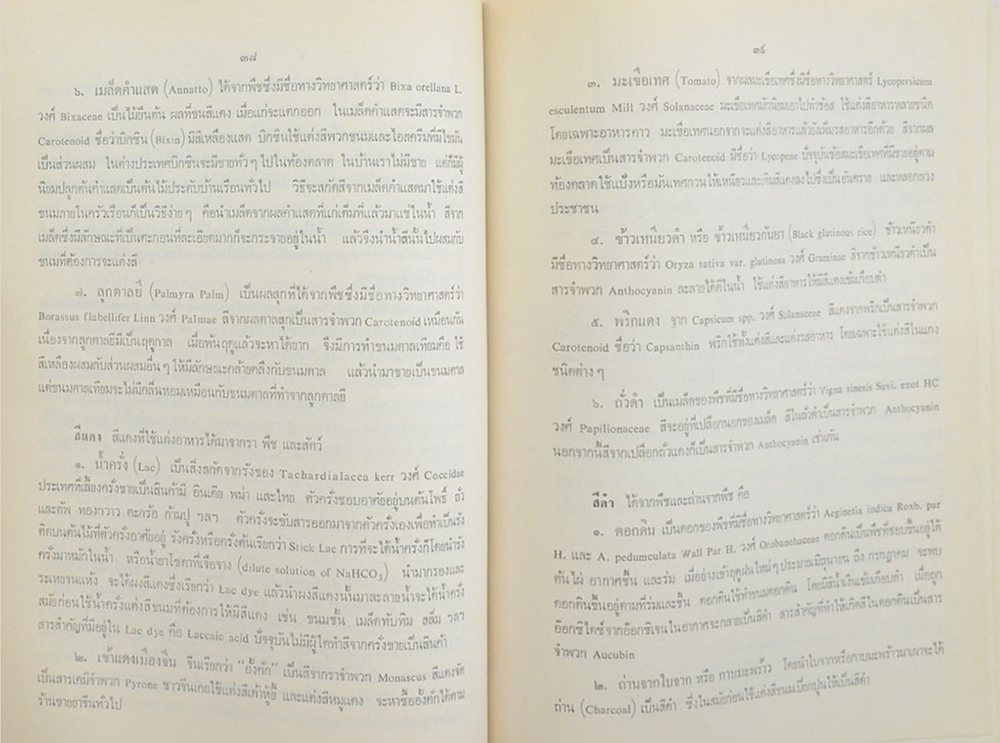 ๓๘
๖. เมล็ดคำแสด (Annatto) ได้จากพืชซึ่งมีชื่อทางวิทยาศาสตร์ว่า Bixa orellana L.
วงศ์ Bixaceae เป็นไม้ยืนต้น ผลที่ขนสีแดง เมื่อแก่จะแตกออก ในเมล็ดคำแสดจะมีสารจำพวก
Carotenoid ชื่อว่าบิกซิน (Bixin) มีสีเหลืองแสด บิกซินใช้แต่งสีพวกขนมและไอสครีมที่มีไขมัน
เป็นส่วนผสม ในต่างประเทศบิกซินจะมีขายทั่วๆ ไปในท้องตลาด ในบ้านเราไม่มีขาย แต่ก็มีผู้
นิยมปลูกต้นคำแสดเป็นต้นไม้ประดับบ้านเรือนทั่วไป วิธีจะสกัดสีจากเมล็ดคำแสดมาใช้แต่งสี
ขนมภายในครัวเรือนก็เป็นวิธีง่ายๆ คือนำเมล็ดจากผลคำแสดที่แก่เต็มที่แล้วมาแช่ในน้ำ สีจาก
เมล็ดซึ่งมีลักษณะที่เป็นตะกอนที่ละเอียดมากก็จะกระจายอยู่ในน้ำ แล้วจึงนำน้ำสีนั้นไปผสมกับ
ขนมที่ต้องการจะแต่งสี
๗. ลูกตาลยี (Palmyra Palm) เป็นผลสุกที่ได้จากพืชซึ่งมีชื่อทางวิทยาศาสตร์ว่า
Borassus flabellifer Linn วงศ์ Palmae สีจากผลตาลสุกเป็นสารจำพวก Carotenoid เหมือนกัน
เนื่องจากลูกตาลยีมีเป็นฤดูกาล เมื่อพ้นฤดูแล้วจะหาได้ยาก จึงมีการทำขนมตาลเทียมคือ ใช้
สีเหลืองผสมกับส่วนผสมอื่นๆ ให้มีลักษณะคล้ายคลึงกับขนมตาล แล้วนำมาขายเป็นขนมตาล
แต่ขนมตาลเทียมจะไม่มีกลิ่นหอมเหมือนกับขนมตาลที่ทำจากลูกตาลยี
สีแดง สีแดงที่ใช้แต่งอาหารได้มาจากรา พืช และสัตว์
๑. น้ำครั่ง (Lac) เป็นสิ่งสกัดจากรังของ Tachardialacca kerr วงศ์ Coccidae
ประเทศที่เลี้ยงครั่งขายเป็นสินค้ามี อินเดีย พม่า และไทย ตัวครั่งชอบอาศัยอยู่บนต้นโพธิ์ ถั่ว
แดด ทองกวาว ตะกร้อ ก้ามปู ฯลฯ ตัวครั่งจะขับสารออกมาจากตัวครั่งเองเพื่อทำเป็นรัง
ติดบนต้นไม้ที่ตัวครั่งอาศัยอยู่ รังครั่งหรือครั่งต้นเรียกว่า Stick Lac การที่จะได้น้ำครั่งก็โดยนำรัง
ครั่งมาหมักในน้ำ หรือน้ำยาโซดาที่เจือจาง (dilute solution of NaHCO3) นำมากรองและ
ระเหยจนแห้ง จะได้ผงสีแดงซึ่งเรียกว่า Lac dye แล้วนำผงสีแดงนั้นมาละลายน้ำจะได้น้ำครั่ง
สมัยก่อนใช้น้ำครั่งแต่งสีขนมที่ต้องการให้มีสีแดง เช่น ขนมชั้น เมล็ดทับทิม สลิ่ม ฯลฯ
สารสำคัญที่มีอยู่ใน Lac dye คือ Laccaic acid ปัจจุบันไม่มีผู้ใดทำสีจากครั่งขายเป็นสินค้า
๒. เข้าแดงเมืองจีน จีนเรียกว่า "อั้งคัก" เป็นสีจากราจำพวก Monascus สีแดงจัด
เป็นสารเคมีจำพวก Pyrone ชาวจีนเคยใช้แต่งสีเต้าหู้ยี้ และแต่งสีหมูแดง จะหาซื้ออั้งคักได้ตาม
ร้านขายยาจีนทั่วไป
๓๙
๓. มะเขือเทศ (Tomato) จากผลมะเขือเทศซึ่งมีชื่อทางวิทยาศาสตร์ Lycopersicum
esculentum Mill วงศ์ Solanaceae มะเขือเทศมักนิยมเอาไปทำซ้อส ใช้แต่งสีอาหารหลายชนิด
โดยเฉพาะอาหารคาว มะเขือเทศนอกจากจะแต่งสีอาหารแล้วยังเพิ่มรสอาหารอีกด้วย สีจากผล
มะเขือเทศเป็นสารจำพวก Carotenoid มีชื่อว่า Lycopene ปัจจุบันซ้อสมะเขือเทศที่มีขายอยู่ตาม
ท้องตลาด ใช้แป้งหรือมันเทศกวนให้เหนียวและเติมสีแดงลงไปซึ่งเป็นอันตราย และหลอกลวง
ประชาชน
๔. ข้าวเหนียวดำ หรือ ข้าวเหนียวกันยา (Black glutinous rice) ข้าวเหนียวดำ
มีชื่อทางวิทยาศาสตร์ว่า Oryza sativa var. glutinosa วงศ์ Graminae สีจากข้าวเหนียวดำเป็น
สารจำพวก Anthocyanin ละลายได้ดีในน้ำ ใช้แต่งสีอาหารให้มีสีแดงเข้มเกือบดำ
๕. พริกแดง จาก Capsicum spp. วงศ์ Solanaceae สีแดงจากพริกเป็นสารจำพวก
Carotenoid ชื่อว่า Capsanthin พริกใช้ทั้งแต่งสีและแต่งรสอาหาร โดยเฉพาะใช้แต่งสีในแกง
ชนิดต่างๆ
๖. ถั่วดำ เป็นเมล็ดของพืชที่มีชื่อทางวิทยาศาสตร์ว่า Vigna sinesis Savi. exot HC
วงศ์ Papilionaceae สีจะอยู่ที่เปลือกนอกของเมล็ด สีในถั่วดำเป็นสารจำพวก Anthocyanin
นอกจากนี้สีจากเปลือกถั่วแดงก็เป็นสารจำพวก Anthocyanin เช่นกัน
สีดำ ได้จากพืชและถ่านจากพืช คือ
๑. ดอกดิน เป็นดอกของพืชที่มีชื่อทางวิทยาศาสตร์ว่า Aeginetia indica Roxb. par
H. และ A. pedumculata Wall Par H. วงศ์ Orobanchaceae ดอกดินเป็นพืชที่ชอบขึ้นอยู่ใต้
ต้นไผ่ อากาศชื้น และร่ม เมื่อย่างเข้าฤดูฝนใหม่ๆ ประมาณมิถุนายน ถึง กรกฎาคม จะพบ
ดอกดินขึ้นอยู่ตามที่ร่มและชื้น ดอกดินใช้ทำขนมดอกดิน โดยมีสีน้ำเงินเข้มเกือบดำ เมื่อถูก
อ๊อกซิไดซ์จากอ๊อกซิเจนในอากาศจะกลายเป็นสีดำ สารสำคัญที่ทำให้เกิดสีในดอกดินเป็นสาร
จำพวก Aucubin
๒. ถ่านจากใบจาก หรือ กาบมะพร้าว โดยนำใบจากหรือกาบมะพร้าวมาเผาจะได้
ถ่าน (Charcoal) เป็นสีดำ ซึ่งในสมัยก่อนใช้แต่งสีขนมเปียกปูนให้เป็นสีดำ